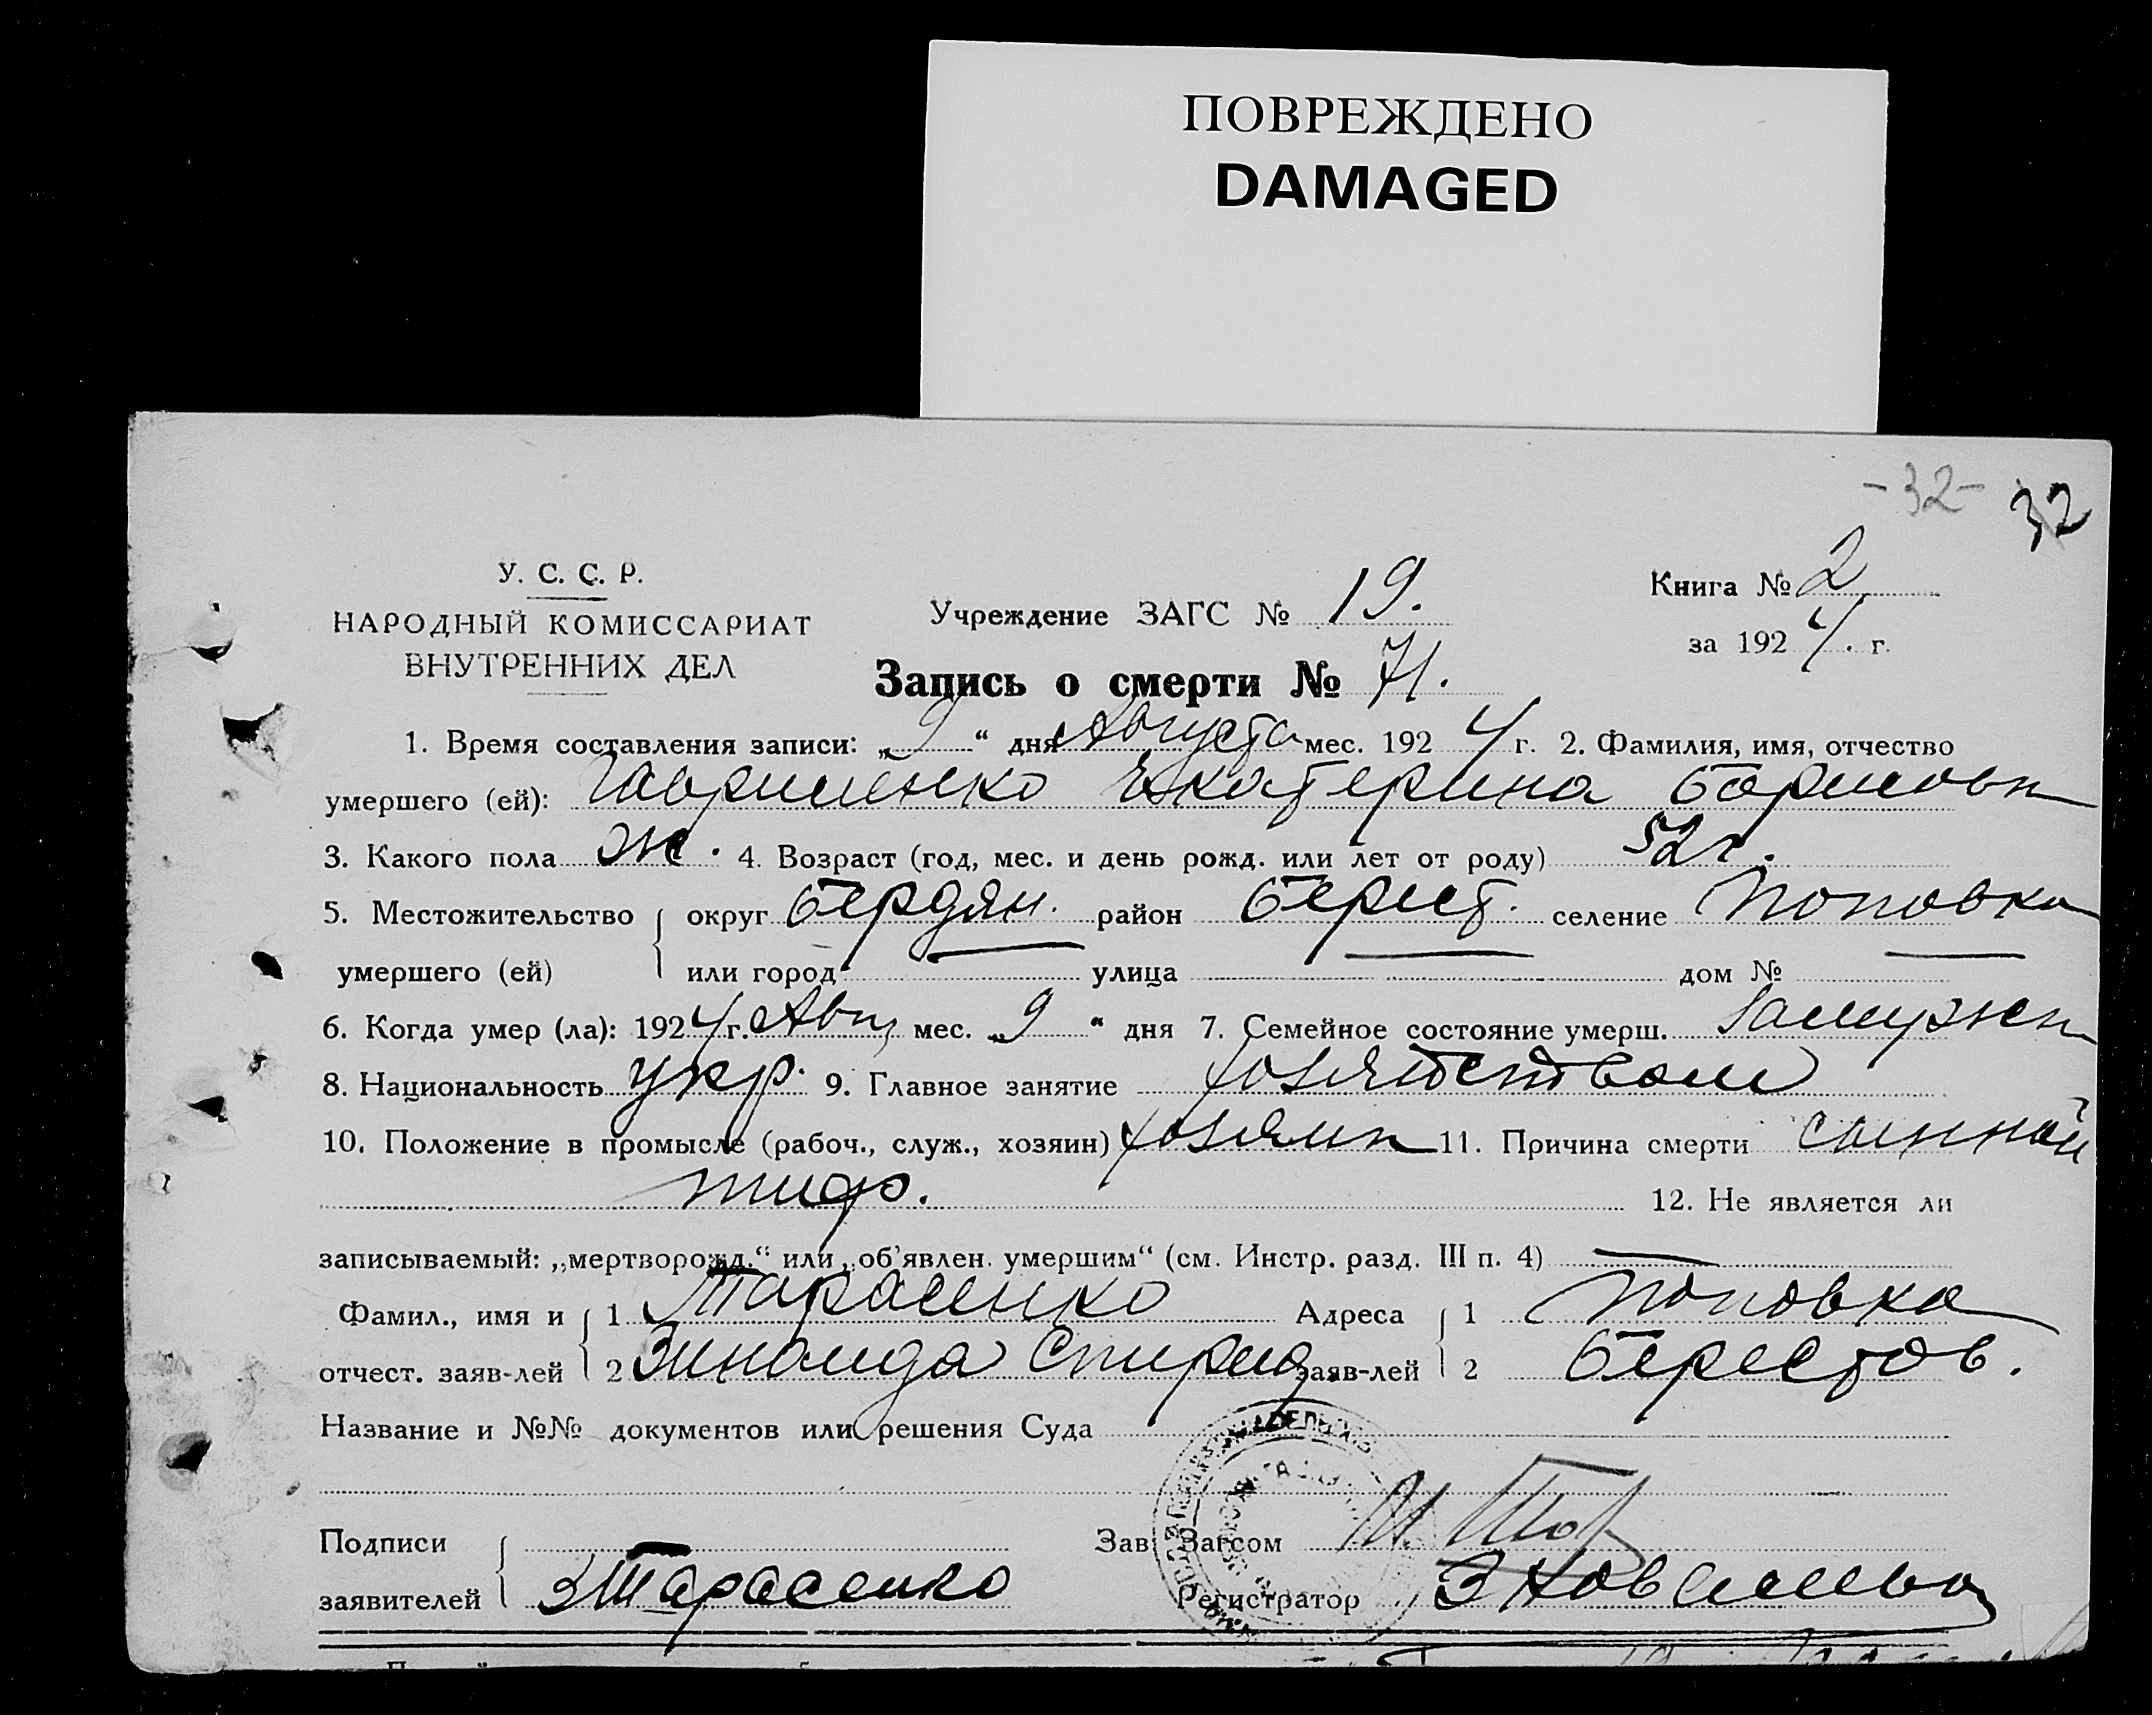 ПОВРЕЖДЕНО
DAMAGED
-32- 32
У. С. С. Р.
НАРОДНЫЙ КОМИССАРИАТ
ВНУТРЕННИХ ДЕЛ
Учреждение ЗАГС № 19.
Книга № 2
за 1924. г.
Запись о смерти № 71.
1. Время составления записи: „9“ дня Августа мес. 1924 г. 2. Фамилия, имя, отчество
умершего (ей): Гавришенко Екатерина
3. Какого пола ж. 4. Возраст (год, мес. и день рожд. или лет от роду) 52 г.
5. Местожительство округ Бердян. район Берест. селение Поповка
умершего (ей) или город — улица — дом № —
6. Когда умер (ла): 1924 г. Авг мес. „9“ дня 7. Семейное состояние умерш. Замужем
8. Национальность укр. 9. Главное занятие хозяйством
10. Положение в промысле (рабоч., служ., хозяин) хозяин 11. Причина смерти сыпной
тиф. 12. Не является ли
записываемый: „мертворожд.“ или „об'явлен. умершим“ (см. Инстр. разд. III п. 4) —
Фамил., имя и 1 Тарасенко Адреса 1 Поповка
отчест. заяв-лей 2 Зинаида Спирид. заяв-лей 2 Берестов.
Название и №№ документов или решения Суда
Подписи Зав. Загсом
заявителей ЗТарасенко Регистратор